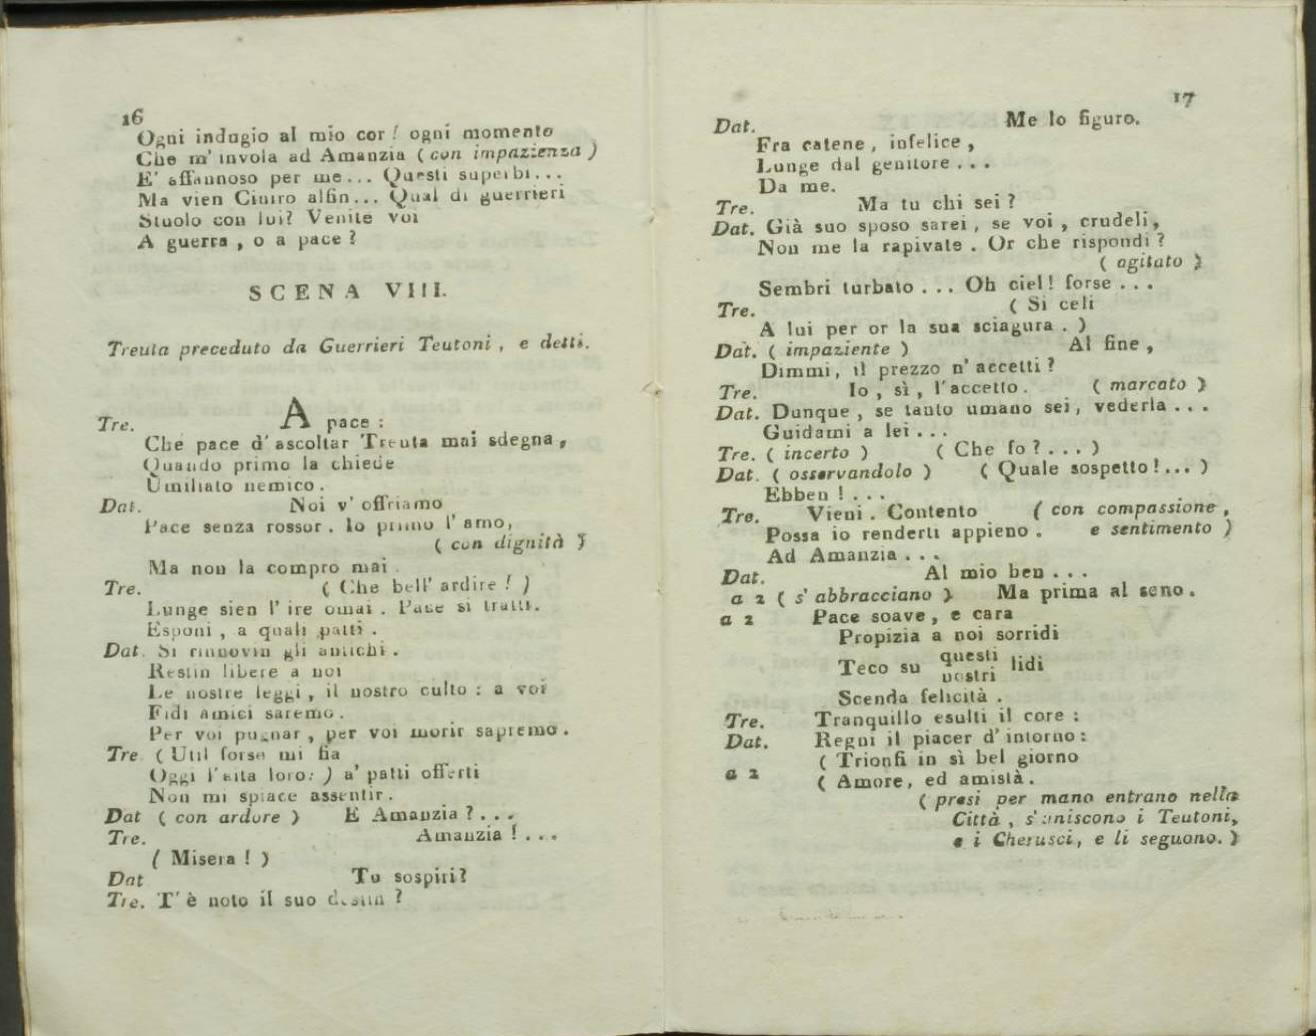 16
Ogni indugio al mio cor! ogni momento
Che m' invola ad Amanzia ( con impazienza )
E' affannoso per me... Questi superbi...
Ma vien Ciniro alfin... Qual di guerrieri
Stuolo con lui? Venite voi
A guerra, o a pace?
SCENA VIII.
Treuta preceduto da Guerrieri Teutoni, e detti.
Tre. A pace:
Che pace d' ascoltar Treuta mai sdegna,
Quando primo la chiede
Umiliato nemico.
Dat. Noi v' offriamo
Pace senza rossor. Io primo l' amo,
( con dignità )
Ma non la compro mai.
Tre. ( Che bell' ardire! )
Lunge sien l' ire omai. Pace si tratti.
Esponi, a quali patti.
Dat. Si rinnovin gli antichi.
Restin libere a noi
Le nostre leggi, il nostro culto: a voi
Fidi amici saremo.
Per voi pugnar, per voi morir sapremo.
Tre. ( Util forse mi fia
Oggi l' aita loro: ) a' patti offerti
Non mi spiace assentir.
Dat ( con ardore ) E Amanzia?...
Tre. Amanzia!...
( Misera! )
Dat Tu sospiri?
Tre. T' è noto il suo destin?
17
Dat. Me lo figuro.
Fra catene, infelice,
Lunge dal genitore...
Da me.
Tre. Ma tu chi sei?
Dat. Già suo sposo sarei, se voi, crudeli,
Non me la rapivate. Or che rispondi?
( agitato )
Sembri turbato... Oh ciel! forse...
Tre. ( Si celi
A lui per or la sua sciagura. )
Dat. ( impaziente ) Al fine,
Dimmi, il prezzo n' accetti?
Tre. Io, sì, l' accetto. ( marcato )
Dat. Dunque, se tanto umano sei, vederla...
Guidami a lei...
Tre. ( incerto ) ( Che fo?... )
Dat. ( osservandolo ) ( Quale sospetto!... )
Ebben!...
Tre. Vieni. Contento ( con compassione,
Possa io renderti appieno. e sentimento )
Ad Amanzia...
Dat. Al mio ben...
a 2 ( s' abbracciano ) Ma prima al seno.
a 2 Pace soave, e cara
Propizia a noi sorridi
Teco su questi lidi
nostri
Scenda felicità.
Tre. Tranquillo esulti il core:
Dat. Regni il piacer d' intorno:
a 2 ( Trionfi in sì bel giorno
( Amore, ed amistà.
( presi per mano entrano nella
Città, s' uniscono i Teutoni,
e i Cherusci, e li seguono. )